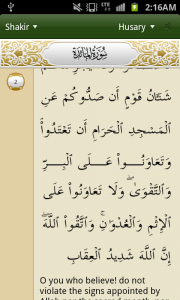 2:16AM
Shakir Husary
سورة المائدة
2
شَنَـَٔانُ قَوْمٍ أَن صَدُّوكُمْ عَنِ
ٱلْمَسْجِدِ ٱلْحَرَامِ أَن تَعْتَدُوا۟
وَتَعَاوَنُوا۟ عَلَى ٱلْبِرِّ
وَٱلتَّقْوَىٰ ۖ وَلَا تَعَاوَنُوا۟ عَلَى
ٱلْإِثْمِ وَٱلْعُدْوَٰنِ ۚ وَٱتَّقُوا۟ ٱللَّهَ ۖ
إِنَّ ٱللَّهَ شَدِيدُ ٱلْعِقَابِ
O you who believe! do not
violate the signs appointed by